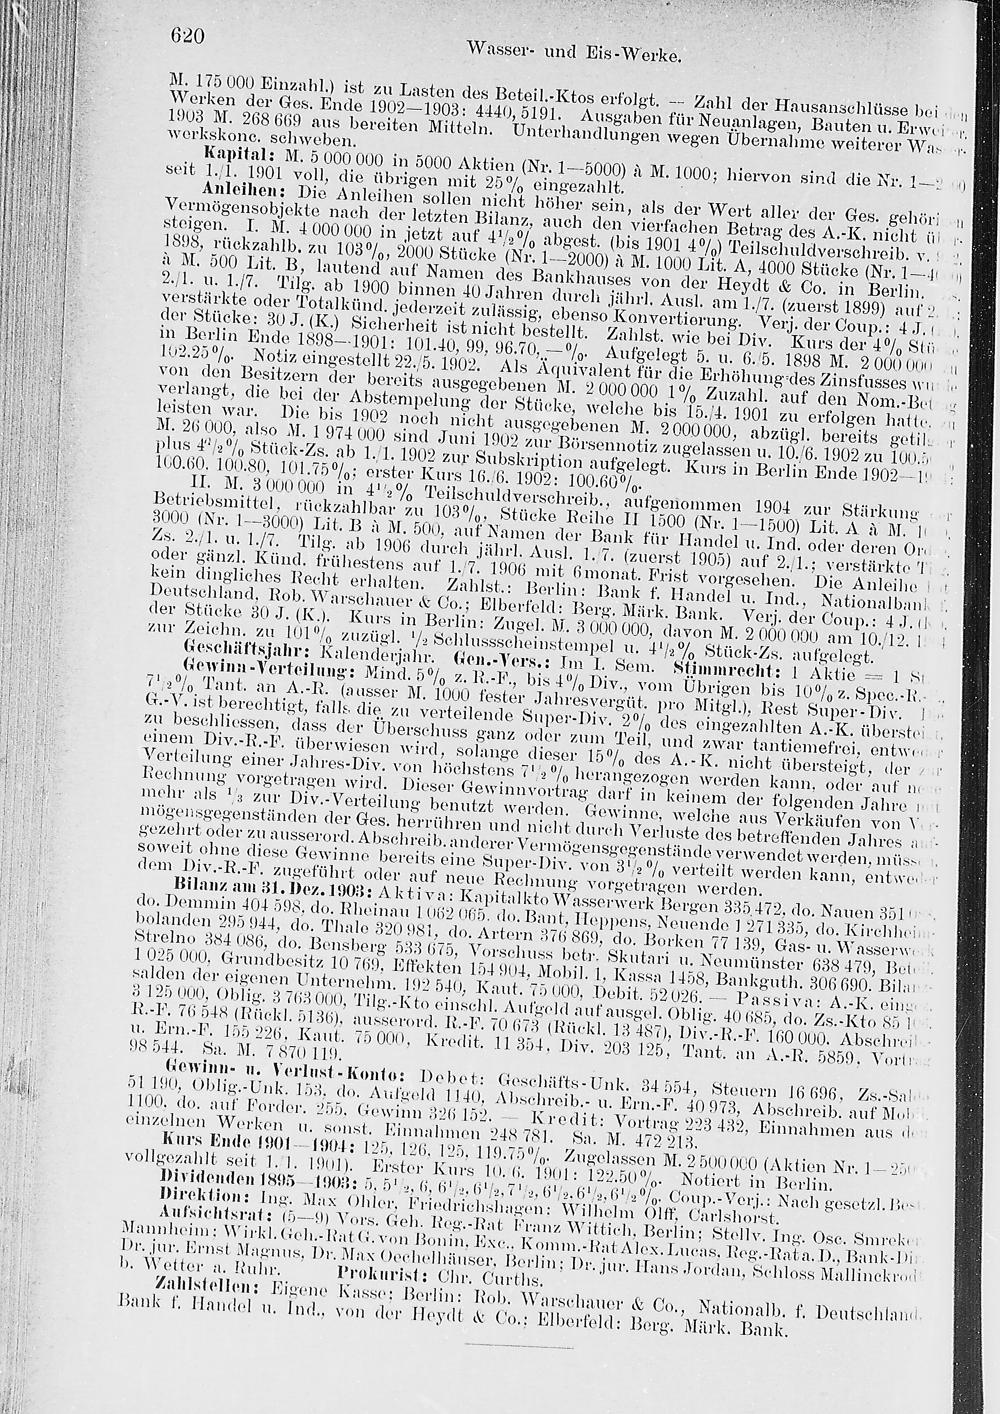 620
Wasser- und Eis-Werke.
M. 175 000 Einzahl.) ist zu Lasten des Beteil.-Ktos erfolgt. — Zahl der Hausanschlüsse bei
Werken der Ges. Ende 1902—1903: 4440, 5191. Ausgaben für Neuanlagen, Bauten u. Erwe
1903 M. 268 669 aus bereiten Mitteln. Unterhandlungen wegen Übernahme weiterer Was
werkskonc. schweben.
Kapital: M. 5 000 000 in 5000 Aktien (Nr. 1—5000) à M. 1000; hiervon sind die Nr. 1—
seit 1./1. 1901 voll, die übrigen mit 25% eingezahlt.
Anleihen: Die Anleihen sollen nicht höher sein, als der Wert aller der Ges. gehöri
Vermögensobjekte nach der letzten Bilanz, auch den vierfachen Betrag des A.-K. nicht ü
steigen. I. M. 4 000 000 in jetzt auf 4½% abgest. (bis 1901 4%) Teilschuldverschreib. v.
1898, rückzahlb. zu 103%, 2000 Stücke (Nr. 1—2000) à M. 1000 Lit. A, 4000 Stücke (Nr. 1—4
à M. 500 Lit. B, lautend auf Namen des Bankhauses von der Heydt & Co. in Berlin.
2./1. u. 1./7. Tilg. ab 1900 binnen 40 Jahren durch jährl. Ausl. am 1./7. (zuerst 1899) auf 2.
verstärkte oder Totalkünd. jederzeit zulässig, ebenso Konvertierung. Verj. der Coup.: 4 J.
der Stücke: 30 J. (K.) Sicherheit ist nicht bestellt. Zahlst. wie bei Div. Kurs der 4% Stü
in Berlin Ende 1898—1901: 101.40, 99, 96.70, —%. Aufgelegt 5. u. 6./5. 1898 M. 2 000 000
102.25%. Notiz eingestellt 22./5. 1902. Als Äquivalent für die Erhöhung des Zinsfusses wu
von den Besitzern der bereits ausgegebenen M. 2 000 000 1% Zuzahl. auf den Nom.-Bet
verlangt, die bei der Abstempelung der Stücke, welche bis 15./4. 1901 zu erfolgen hatte,
leisten war. Die bis 1902 noch nicht ausgegebenen M. 2 000 000, abzügl. bereits getil
M. 26 000, also M. 1 974 000 sind Juni 1902 zur Börsennotiz zugelassen u. 10./6. 1902 zu 100.5
plus 4½% Stück-Zs. ab 1./1. 1902 zur Subskription aufgelegt. Kurs in Berlin Ende 1902—1
100.60, 100.80, 101.75%; erster Kurs 16./6. 1902: 100.60%.
II. M. 3 000 000 in 4½% Teilschuldverschreib., aufgenommen 1904 zur Stärkung
Betriebsmittel, rückzahlbar zu 103%, Stücke Reihe II 1500 (Nr. 1—1500) Lit. A à M. 1
3000 (Nr. 1—3000) Lit. B à M. 500, auf Namen der Bank für Handel u. Ind. oder deren Or
Zs. 2./1. u. 1./7. Tilg. ab 1906 durch jährl. Ausl. 1./7. (zuerst 1905) auf 2./1.; verstärkte T
oder gänzl. Künd. frühestens auf 1./7. 1906 mit 6monat. Frist vorgesehen. Die Anleihe
kein dingliches Recht erhalten. Zahlst.: Berlin: Bank f. Handel u. Ind., Nationalbank f.
Deutschland, Rob. Warschauer & Co.; Elberfeld: Berg. Märk. Bank. Verj. der Coup.: 4 J.
der Stücke 30 J. (K.). Kurs in Berlin: Zugel. M. 3 000 000, davon M. 2 000 000 am 10./12. 1
zur Zeichn. zu 101% zuzügl. ½ Schlussscheinstempel u. 4½% Stück-Zs. aufgelegt.
Geschäftsjahr: Kalenderjahr. Gen.-Vers.: Im I. Sem. Stimmrecht: 1 Aktie = 1 St
Gewinn-Verteilung: Mind. 5% z. R.-F., bis 4% Div., vom Übrigen bis 10% z. Spec.-R.-
7½% Tant. an A.-R. (ausser M. 1000 fester Jahresvergüt. pro Mitgl.), Rest Super-Div.
G.-V. ist berechtigt, falls die zu verteilende Super-Div. 2% des eingezahlten A.-K. überstei
zu beschliessen, dass der Überschuss ganz oder zum Teil, und zwar tantiemefrei, entwe
einem Div.-R.-F. überwiesen wird, solange dieser 15% des A.-K. nicht übersteigt, der
Verteilung einer Jahres-Div. von höchstens 7½% herangezogen werden kann, oder auf n
Rechnung vorgetragen wird. Dieser Gewinnvortrag darf in keinem der folgenden Jahre
mehr als ⅓ zur Div.-Verteilung benutzt werden. Gewinne, welche aus Verkäufen von V
mögensgegenständen der Ges. herrühren und nicht durch Verluste des betreffenden Jahres a
gezehrt oder zu ausserord. Abschreib. anderer Vermögensgegenstände verwendet werden, müss
soweit ohne diese Gewinne bereits eine Super-Div. von 3½% verteilt werden kann, entwe
dem Div.-R.-F. zugeführt oder auf neue Rechnung vorgetragen werden.
Bilanz am 31. Dez. 1903: Aktiva: Kapitalkto Wasserwerk Bergen 335 472, do. Nauen 351
do. Demmin 404 598, do. Rheinau 1 062 065, do. Bant, Heppens, Neuende 1 271 335, do. Kirchheim-
bolanden 295 944, do. Thale 320 981, do. Artern 376 869, do. Borken 77 139, Gas- u. Wasserwerk
Strelno 384 086, do. Bensberg 533 675, Vorschuss betr. Skutari u. Neumünster 638 479, Bet
1 025 000, Grundbesitz 10 769, Effekten 154 904, Mobil. 1, Kassa 1458, Bankguth. 306 690. Bilanz-
salden der eigenen Unternehm. 192 540, Kaut. 75 000, Debit. 52 026. — Passiva: A.-K. einge
3 125 000, Oblig. 3 763 000, Tilg.-Kto einschl. Aufgeld auf ausgel. Oblig. 40 685, do. Zs.-Kto 85 1
R.-F. 76 548 (Rückl. 5136), ausserord. R.-F. 70 673 (Rückl. 13 487), Div.-R.-F. 160 000, Abschreib
u. Ern.-F. 155 226, Kaut. 75 000, Kredit. 11 354, Div. 203 125, Tant. an A.-R. 5859, Vortrag
98 544. Sa. M. 7 870 119.
Gewinn- u. Verlust-Konto: Debet: Geschäfts-Unk. 34 554, Steuern 16 696, Zs.-Sal
51 190, Oblig.-Unk. 153, do. Aufgeld 1140, Abschreib.- u. Ern.-F. 40 973, Abschreib. auf Mob
1100, do. auf Forder. 255, Gewinn 326 152. — Kredit: Vortrag 223 432, Einnahmen aus den
einzelnen Werken u. sonst. Einnahmen 248 781. Sa. M. 472 213.
Kurs Ende 1901—1904: 125, 126, 125, 119.75%. Zugelassen M. 2 500 000 (Aktien Nr. 1—250
vollgezahlt seit 1./1. 1901). Erster Kurs 10./6. 1901: 122.50%. Notiert in Berlin.
Dividenden 1895—1903: 5, 5½, 6, 6½, 6½, 7½, 6½, 6½, 6½%. Coup.-Verj.: Nach gesetzl. Bes
Direktion: Ing. Max Ohler, Friedrichshagen; Wilhelm Olff, Carlshorst.
Aufsichtsrat: (5—9) Vors. Geh. Reg.-Rat Franz Wittich, Berlin; Stellv. Ing. Osc. Smreker
Mannheim; Wirkl. Geh.-Rat G. von Bonin, Exc., Komm.-Rat Alex. Lucas, Reg.-Rat a. D., Bank-Dir
Dr. jur. Ernst Magnus, Dr. Max Oechelhäuser, Berlin; Dr. jur. Hans Jordan, Schloss Mallinckrod
b. Wetter a. Ruhr. Prokurist: Chr. Curths.
Zahlstellen: Eigene Kasse; Berlin: Rob. Warschauer & Co., Nationalb. f. Deutschland,
Bank f. Handel u. Ind., von der Heydt & Co.; Elberfeld: Berg. Märk. Bank.